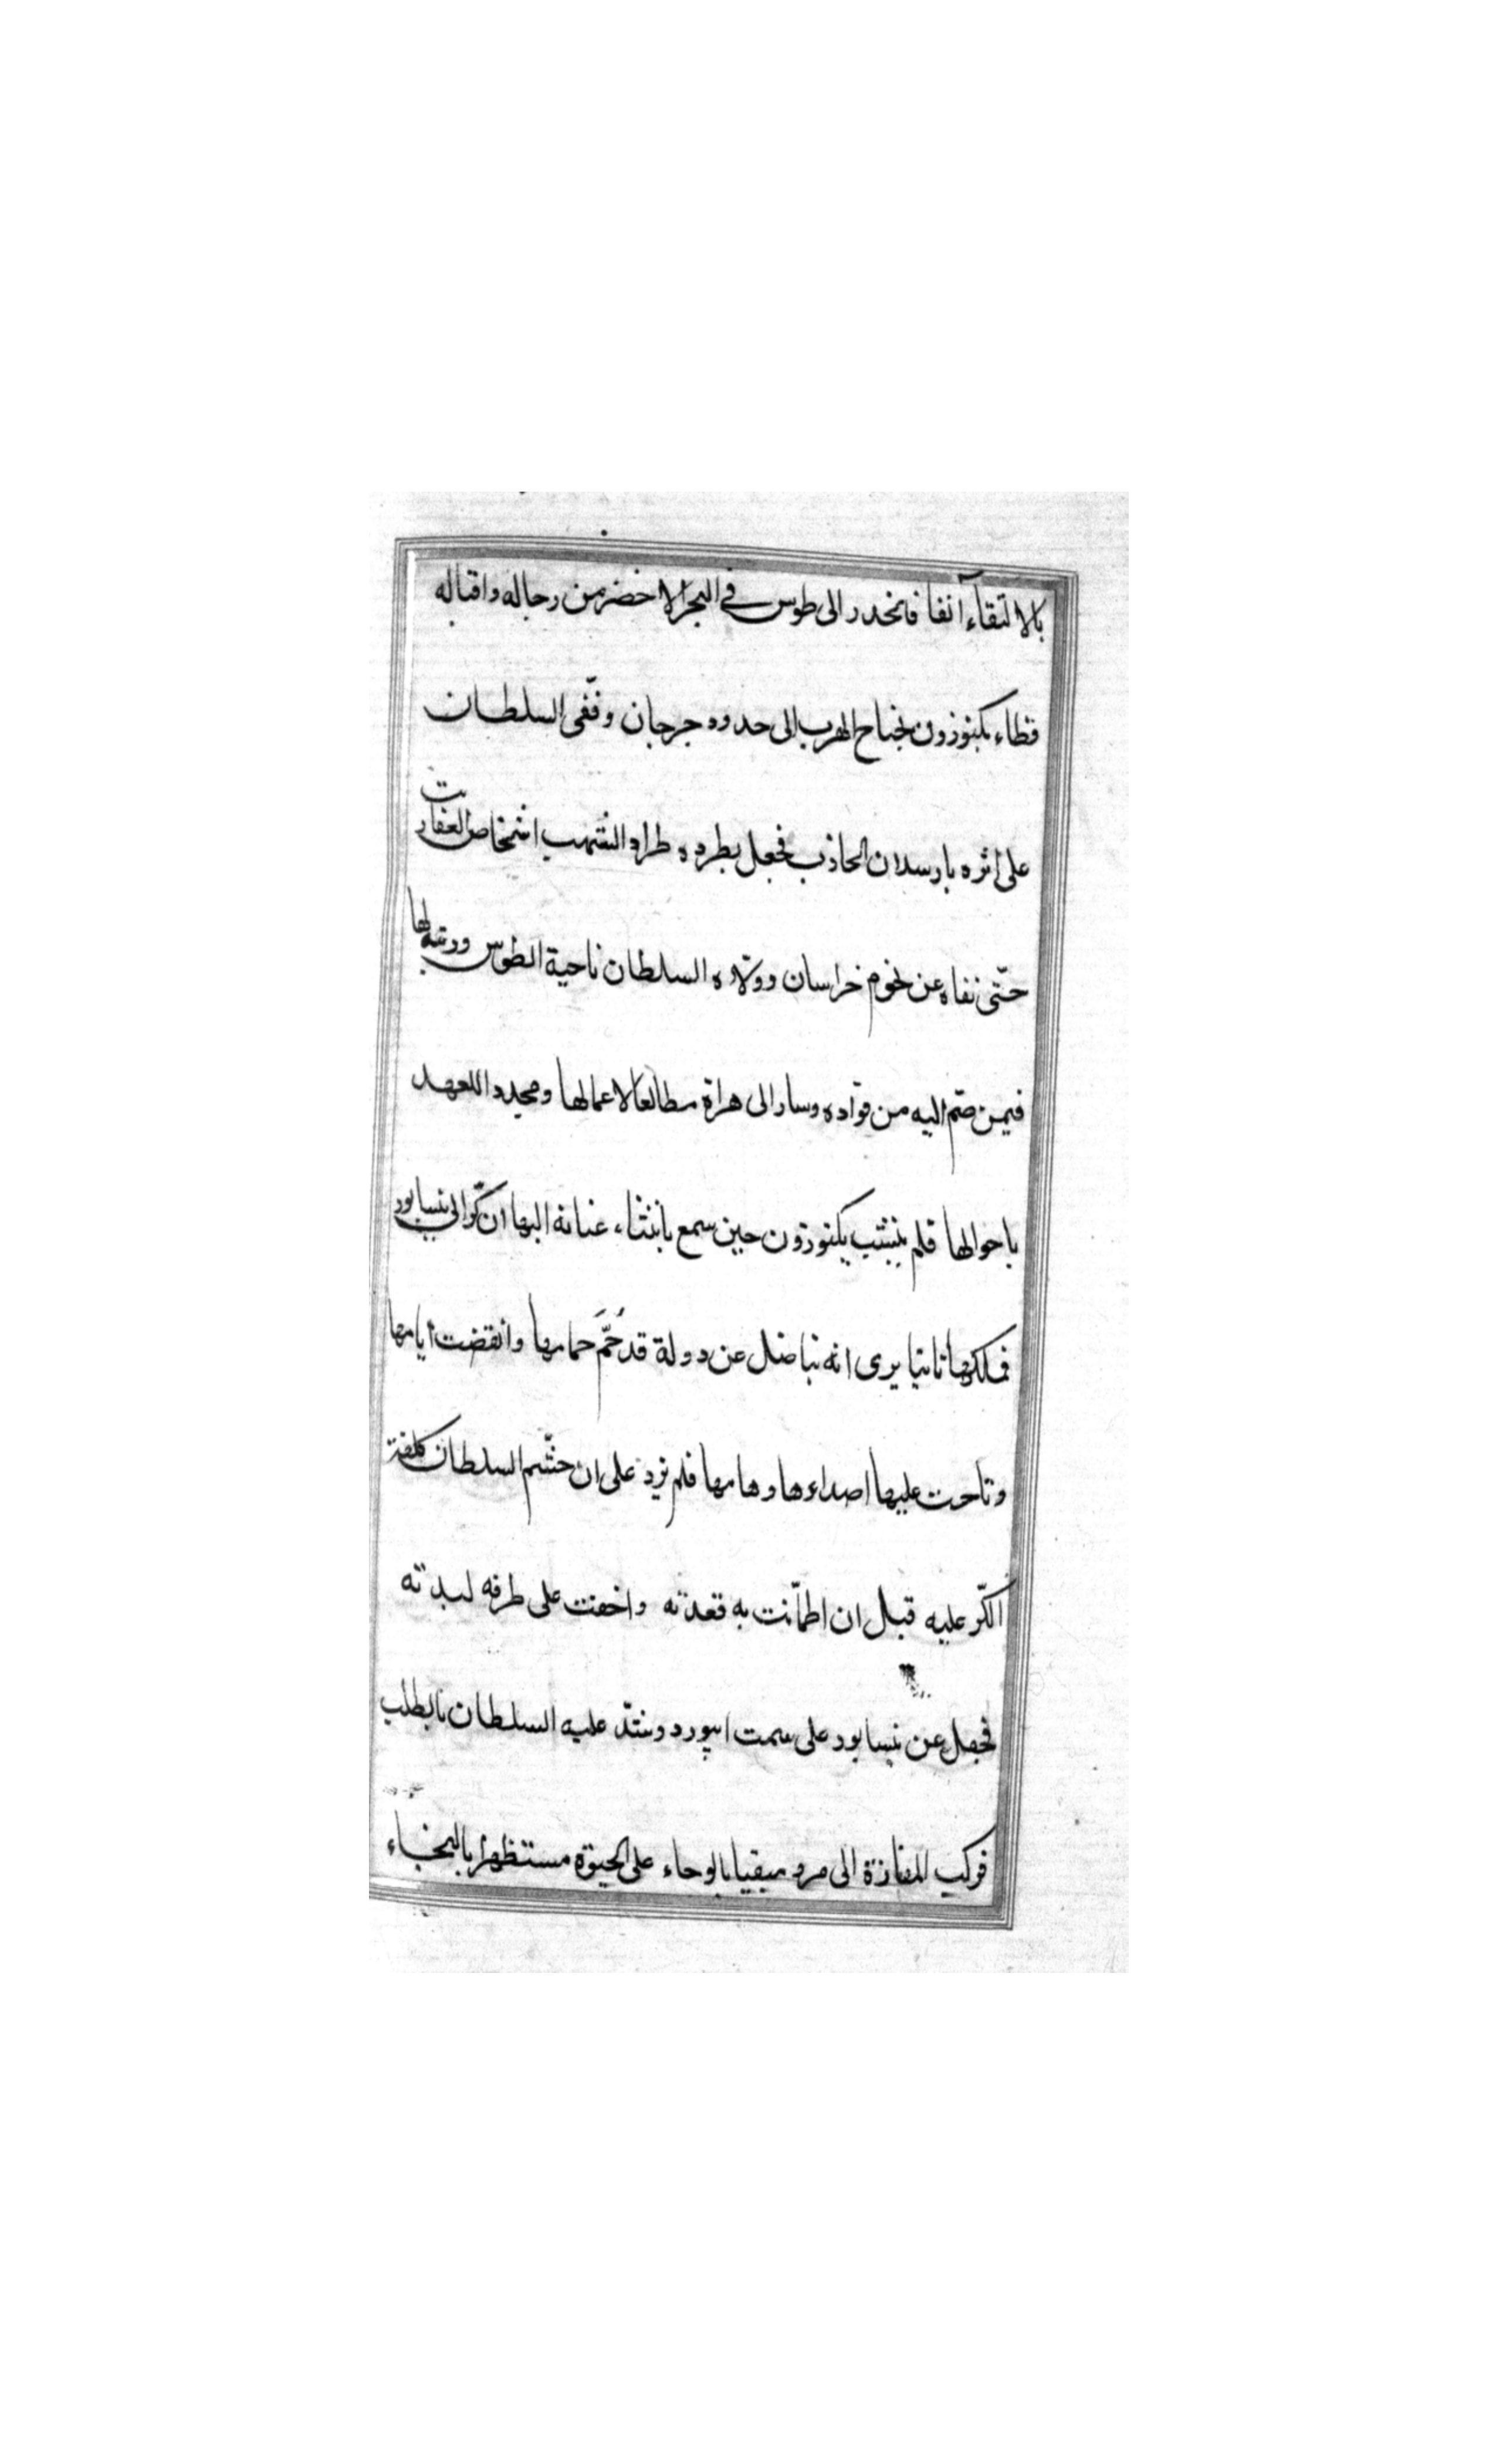 بالالتقاء آنفا فانحدر الى طوس في البحر الاخضر من رجاله واقباله
فطاء بكتوزون بجناح الهرب الى حدود جرجان وقفّى السلطان
على اثره بارسلان الجاذب فجعل يطرده طراد الشهب اشخاص العفاريت
حتّى نفاه عن تخوم خراسان وولّاه السلطان ناحية الطوس ورتبه بها
فيمن ضمّ اليه من قوّاده وسار الى هراة مطالعا لاعمالها ومجددا للعهد
باحوالها فلم ينشب بكتوزون حين سمع بانثناء عنانه اليها ان كرّ الى نيسابور
فملكها ثانيا يرى انه يناضل عن دولة قد حُمَّ حمامها وأنقضت أيامها
وناحت عليها اصداءها وهامها فلم يزد على ان حشّم السلطان كلفة
الكرّ عليه قبل ان اطمأنّت به قعدته واخفت على طرفه لبدته
فجفل عن نيسابور على سمت ابيورد وشدّ عليه السلطان بالطلب
فركب المفازة الى مرو مبقيا بالوحاء على الحيوة مستظهرا بالنجاء